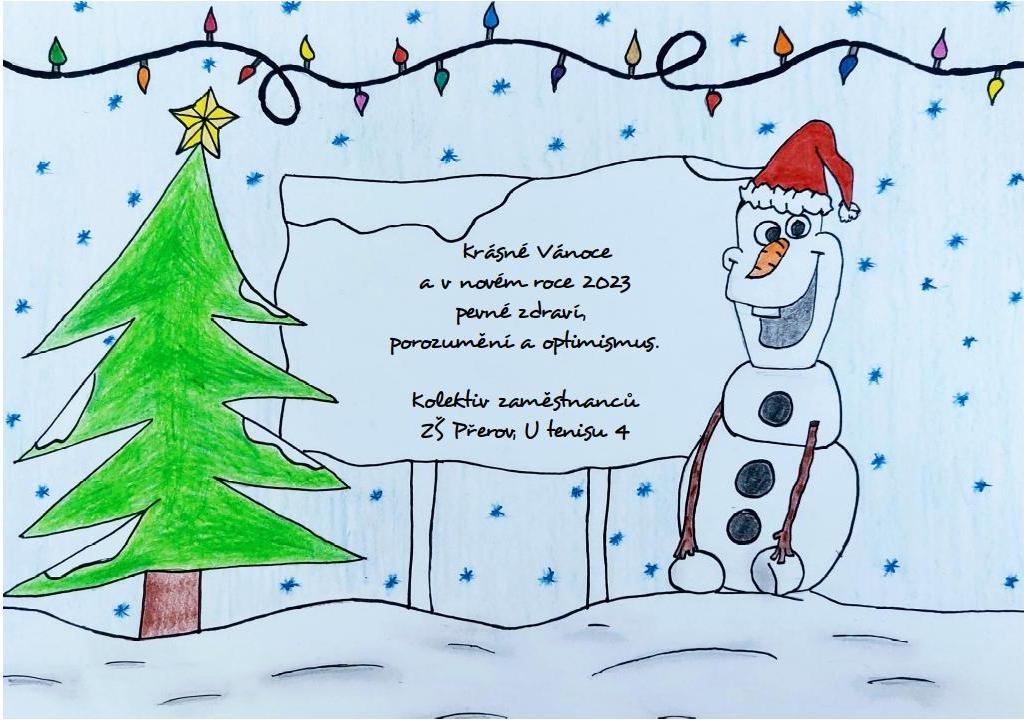 Krásné Vánoce
a v novém roce 2023
pevné zdraví,
porozumění a optimismus.
Kolektiv zaměstnanců
ZŠ Přerov, U tenisu 4